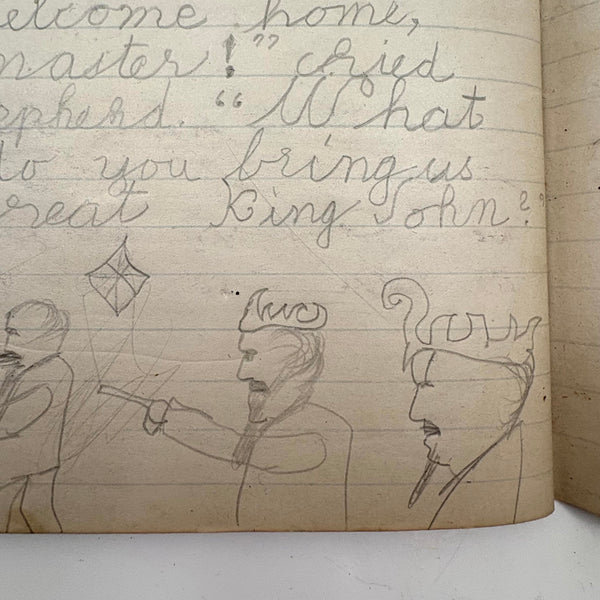 elcome home,
master!" cried
epherd. "What
to you bring us
reat King John?"